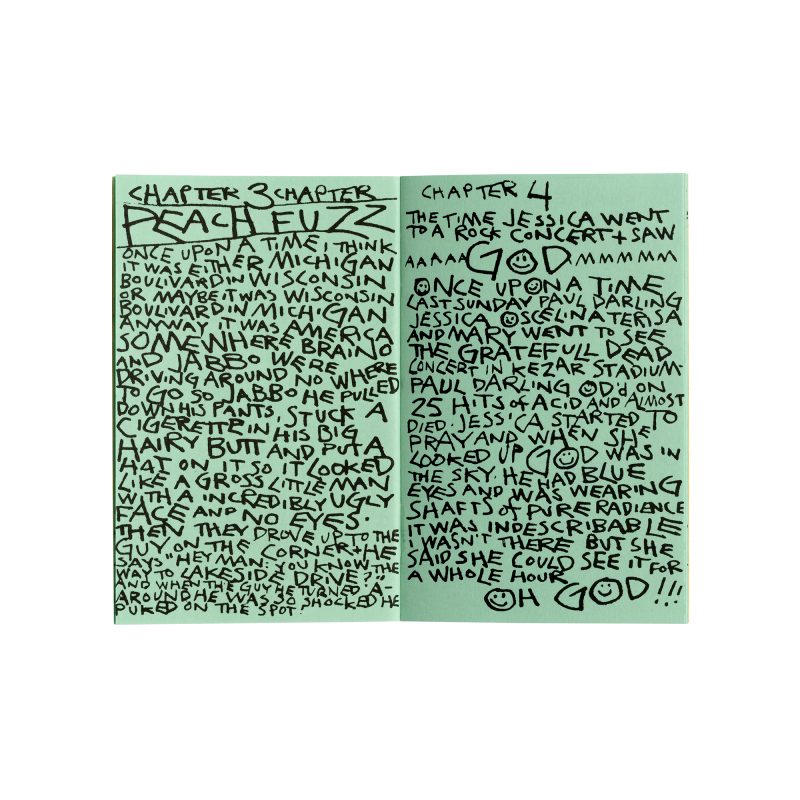 CHAPTER 3 CHAPTER
PEACH FUZZ
ONCE UPON A TIME, I THINK
IT WAS EITHER MICHIGAN
BOULIVARD IN WISCONSIN
OR MAYBE IT WAS WISCONSIN
BOULIVARD IN MICHIGAN
ANYWAY IT WAS AMERICA
SOMEWHERE BRAINO
AND JABBO WERE
DRIVING AROUND NO WHERE
TO GO SO JABBO HE PULLED
DOWN HIS PANTS, STUCK A
CIGERETTE IN HIS BIG
HAIRY BUTT AND PUT A
HAT ON IT SO IT LOOKED
LIKE A GROSS LITTLE MAN
WITH A INCREDIBLY UGLY
FACE AND NO EYES.
THEN THEY DROVE UP TO THE
GUY ON THE CORNER + HE
SAYS "HEY MAN. YOU KNOW THE
WAY TO LAKESIDE DRIVE?"
AND WHEN THE GUY HE TURNED A-
AROUND HE WAS SO SHOCKED HE
PUKED ON THE SPOT.
CHAPTER 4
THE TIME JESSICA WENT
TO A ROCK CONCERT + SAW
AAAAAGODMMMMMM
ONCE UPON A TIME
LAST SUNDAY PAUL DARLING
JESSICA OSCELINA TERISA
AND MARY WENT TO SEE
THE GRATEFULL DEAD
CONCERT IN KEZAR STADIUM.
PAUL DARLING OD'd ON
25 HITS of ACID AND ALMOST
DIED. JESSICA STARTED TO
PRAY AND WHEN SHE
LOOKED UP GOD WAS IN
THE SKY. HE HAD BLUE
EYES AND WAS WEARING
SHAFTS of PURE RADIENCE
IT WAS INDESCRIBABLE
I WASN'T THERE BUT SHE
SAID SHE COULD SEE IT FOR
A WHOLE HOUR
OH GOD!!!